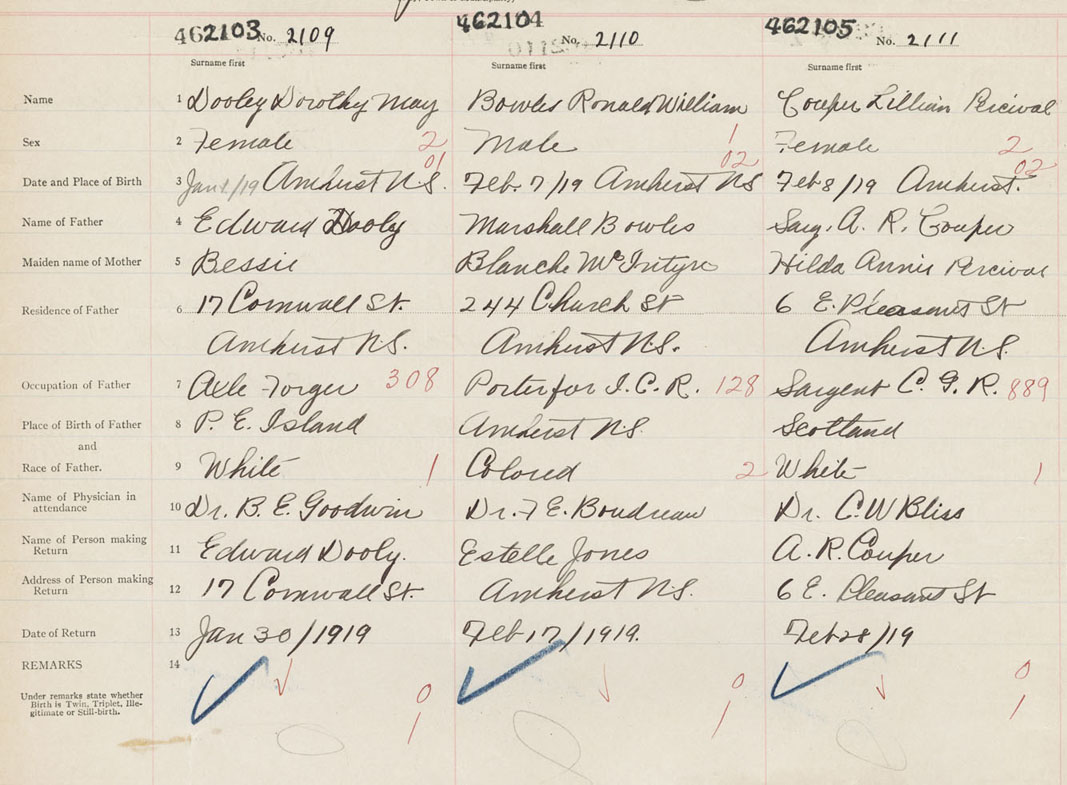 462103 No. 2109 462104 No. 2110 462105 No. 2111
Surname first Surname first Surname first
Name 1 Dooley Dorothy May Bowles Ronald William Couper Lillian Percival
Sex 2 Female 2 Male 1 Female 2
01 02 02
Date and Place of Birth 3 Jan /19 Amherst N.S. Feb. 7/19 Amherst NS Feb 8/19 Amherst.
Name of Father 4 Edward Dooly Marshall Bowles Sarg. A. R. Couper
Maiden name of Mother 5 Bessie Blanche McIntyre Hilda Annie Percival
Residence of Father 6 17 Cornwall St. 244 Church St 6 E. Pleasant St
Amherst N.S. Amherst N.S. Amherst N.S.
Occupation of Father 7 Axle Forger 308 Porter for I.C.R. 128 Sargent C.G.R. 889
Place of Birth of Father 8 P. E. Island Amherst N.S. Scotland
and
Race of Father. 9 White 1 Colored 2 White 1
Name of Physician in attendance 10 Dr. B. E. Goodwin Dr. F E. Boudreau Dr. C. W Bliss
Name of Person making Return 11 Edward Dooly. Estelle Jones A. R. Couper
Address of Person making Return 12 17 Cornwall St. Amherst N.S. 6 E. Pleasant St
Date of Return 13 Jan 30/1919 Feb 17/1919. Feb 28/19
REMARKS 14
Under remarks state whether
Birth is Twin, Triplet, Ille-
gitimate or Still-birth.
0 0 0
1 1 1